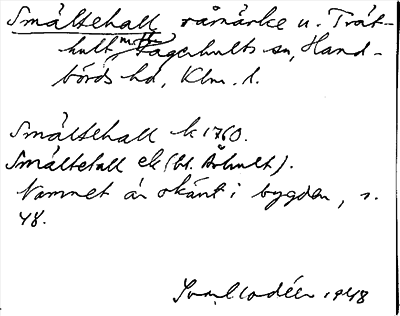 Smältehall råmärke u. Trät-
hult m. fl. Fagerhults sn, Hand-
börds hd, Klm. l.
Smältehall k 1760.
Smältehall ek (bl. Bohult).
Namnet är okänt i bygden, s.
48.
1948